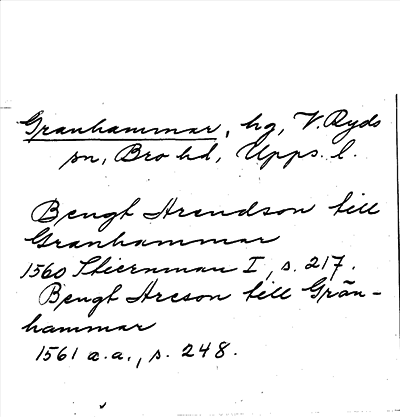 Granhammar, hg, V. Ryds
sn, Bro hd, Upps. l.
Bengt Arendson till
Granhammar
1560 Stiernman I, s. 217.
Bengt Areson till Grän-
hammar
1561 a.a., s. 248.